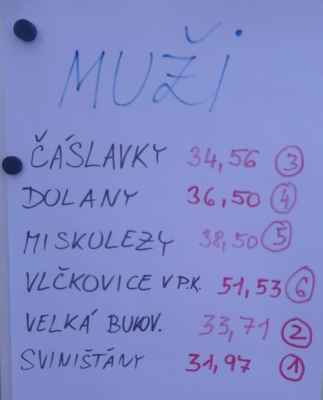 MUŽI
ČÁSLAVKY 34,56 3
DOLANY 36,50 4
MISKOLEZY 38,50 5
VLČKOVICE V P.K. 51,53 6
VELKÁ BUKOV. 33,71 2
SVINIŠŤÁNY 31,97 1